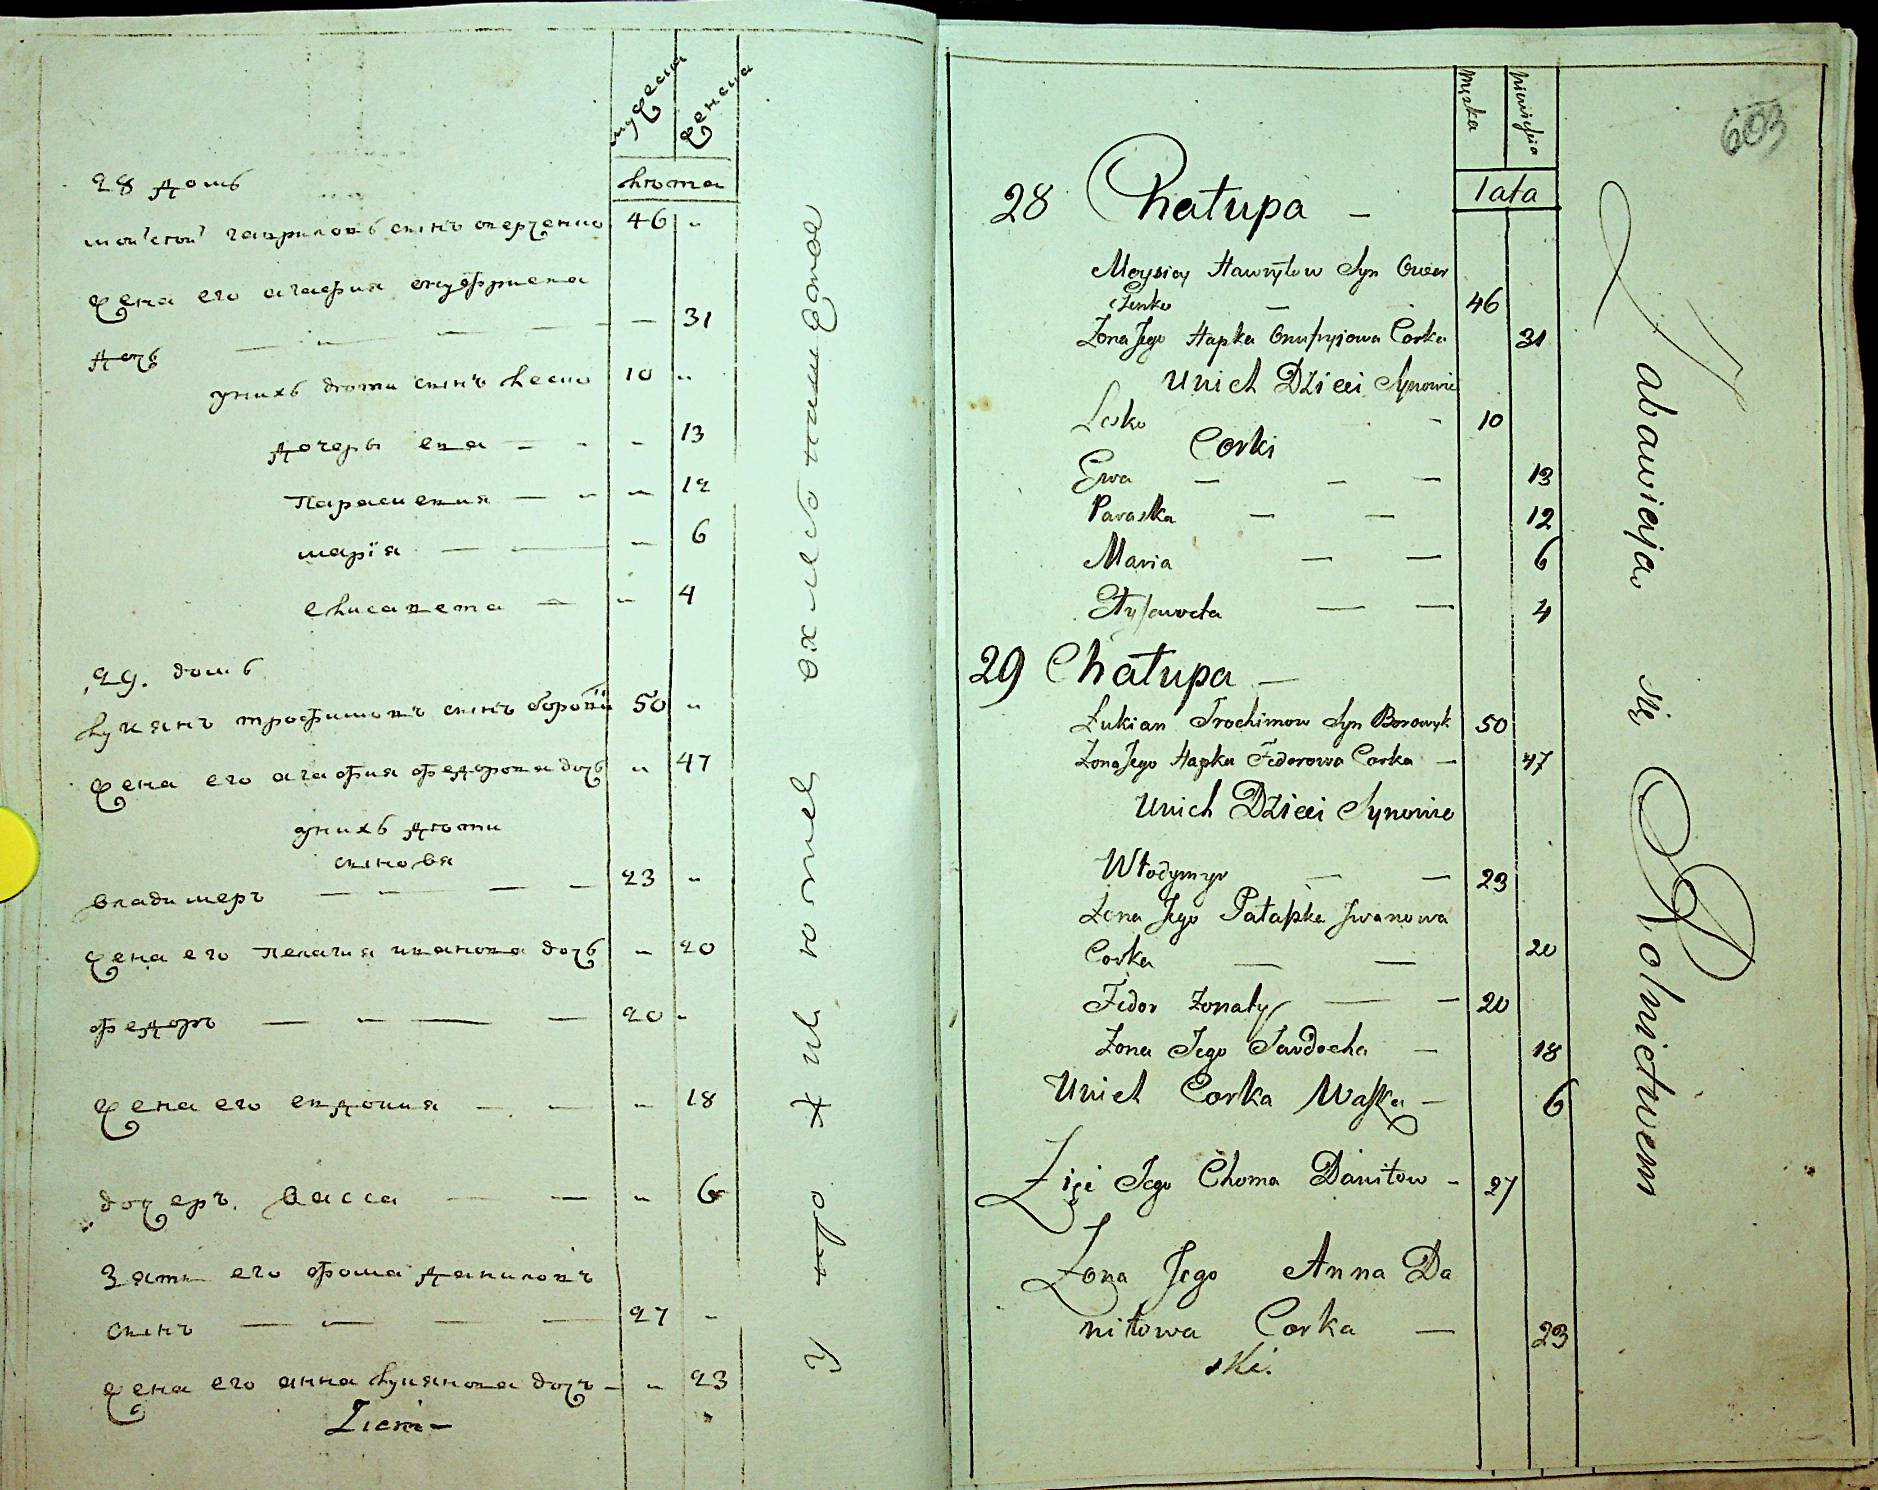 мужеска
женска
лѣта
28 домъ
моисей гавриловъ сынъ оверченко 46 "
жена его агафия онуфриева
дочь — " — — — 31
у нихъ дѣти сынъ леско 10 "
дочеры ева — - - 13
Параскевия — " " 12
марїя — — " 6
елисавета — " 4
29. домъ
лукянъ трофимовъ сынъ боровик 50 "
жена его агафия федорова дочь " 47
у нихъ дѣти
сыновья
владимеръ — " — — 23 "
жена его пелагия иванова дочь " 20
федоръ — " — — 20 "
жена его евдокия — — " 18
дочеръ. васса — — " 6
Зять его фома даниловъ
сынъ — " — — 27 "
жена его анна лукянова дочъ — " 23
męska
lata
603
28 Chałupa —
Moysiey Hawryłow Syn Ower
czenko — 46
Żona Jego Hapka Onufryiowa Corka 31
Unich Dzieci Synowie
Lesko - 10
Corki
Ewa — — — 13
Paraska — — 12
Maria — — 6
— — 4
29 Chałupa —
Łukian Trochimow Syn Borowyk 50
Żona Jego Hapka Fedorowa Corka — 47
Unich Dzieci Synowie
Włodymyr — — 23
Żona Jego Pałaszka Jwanowa
Corka — — 20
Fedor żonaty — — 20
Żona Jego Jawdocha — 18
Unich Corka Waska — 6
Zięć Jego Choma Daniłow - 27
Żona Jego Anna Da
niłowa Corka — 23
ski.
Zabawiaja się Rolnictwem